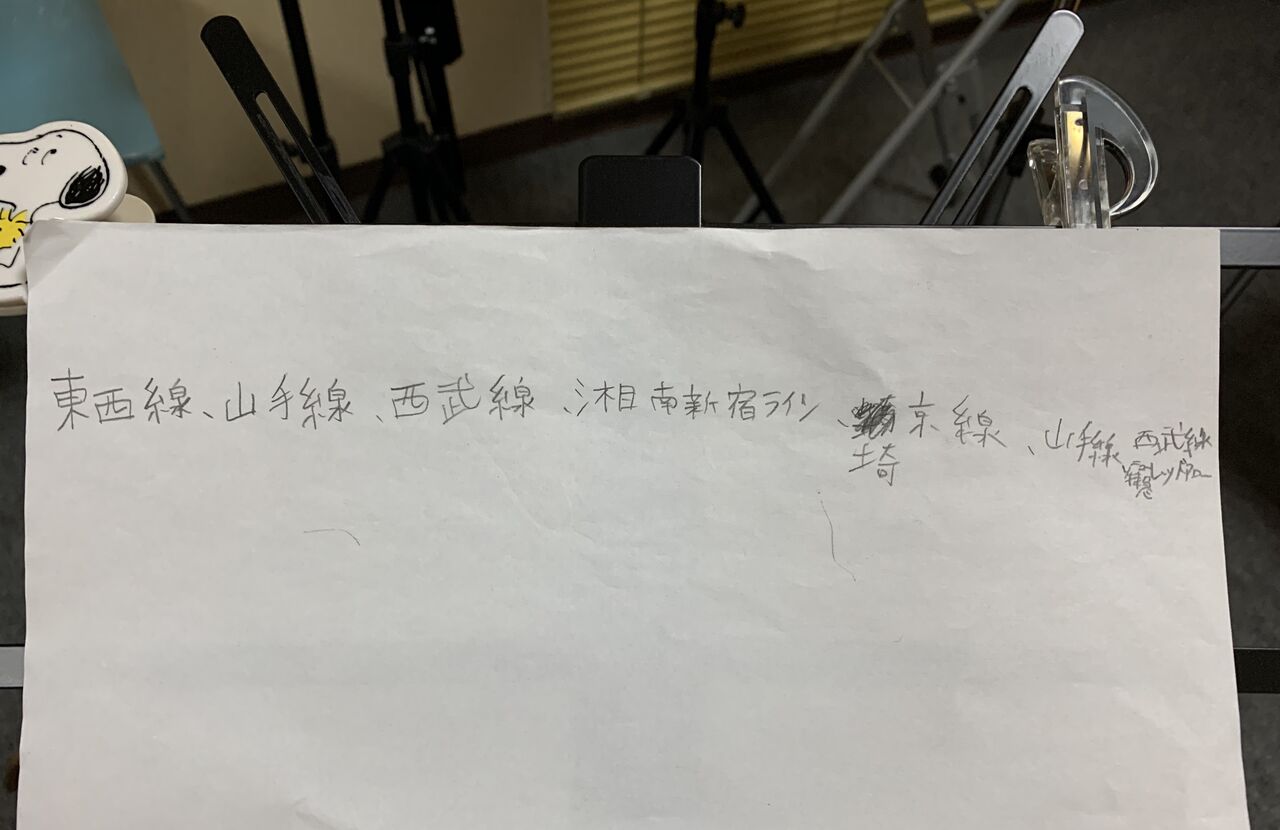 東西線、山手線、西武線、湘南新宿ライン、埼京線、山手線、西武線
特急レッドアロー